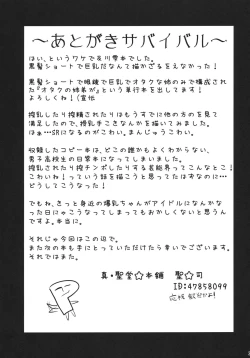 ～あとがきサバイバル～
はい、というワケで及川雫本でした。
黒髪ショートで巨乳だなんて描かざるをえなかった！
黒髪ショートで眼鏡で巨乳でオタクな姉のみで構成され
た『オタクの姉弟が』という単行本を出してます！
よろしくね！（宣伝
搾乳したり搾精されたりはもうすでに他の方のを見て
満足したので、授乳手こきなんかを描いてみました。
はぁ…SRになるのがこわい。まんじゅうこわい。
収録したコピー本は、どこの誰かもよくわからない、
男子高校生の日常本になってしまいました。
搾乳されたり搾チンポしたりする芸能界ってこんなとこ！
こわいね！っていう話を描こうと思ってたはずなのに…
どうしてこうなった！
でもね、きっと身近の爆乳ちゃんがアイドルになんかな
った日にゃこうなってしまってもおかしくないと思うん
ですよ。本当に。
それじゃ今回はこの辺で。
また次の本も手にとっていただけたら幸いでございます。
それではまた。
真・聖堂☆本舗　聖☆司
ID:47858099